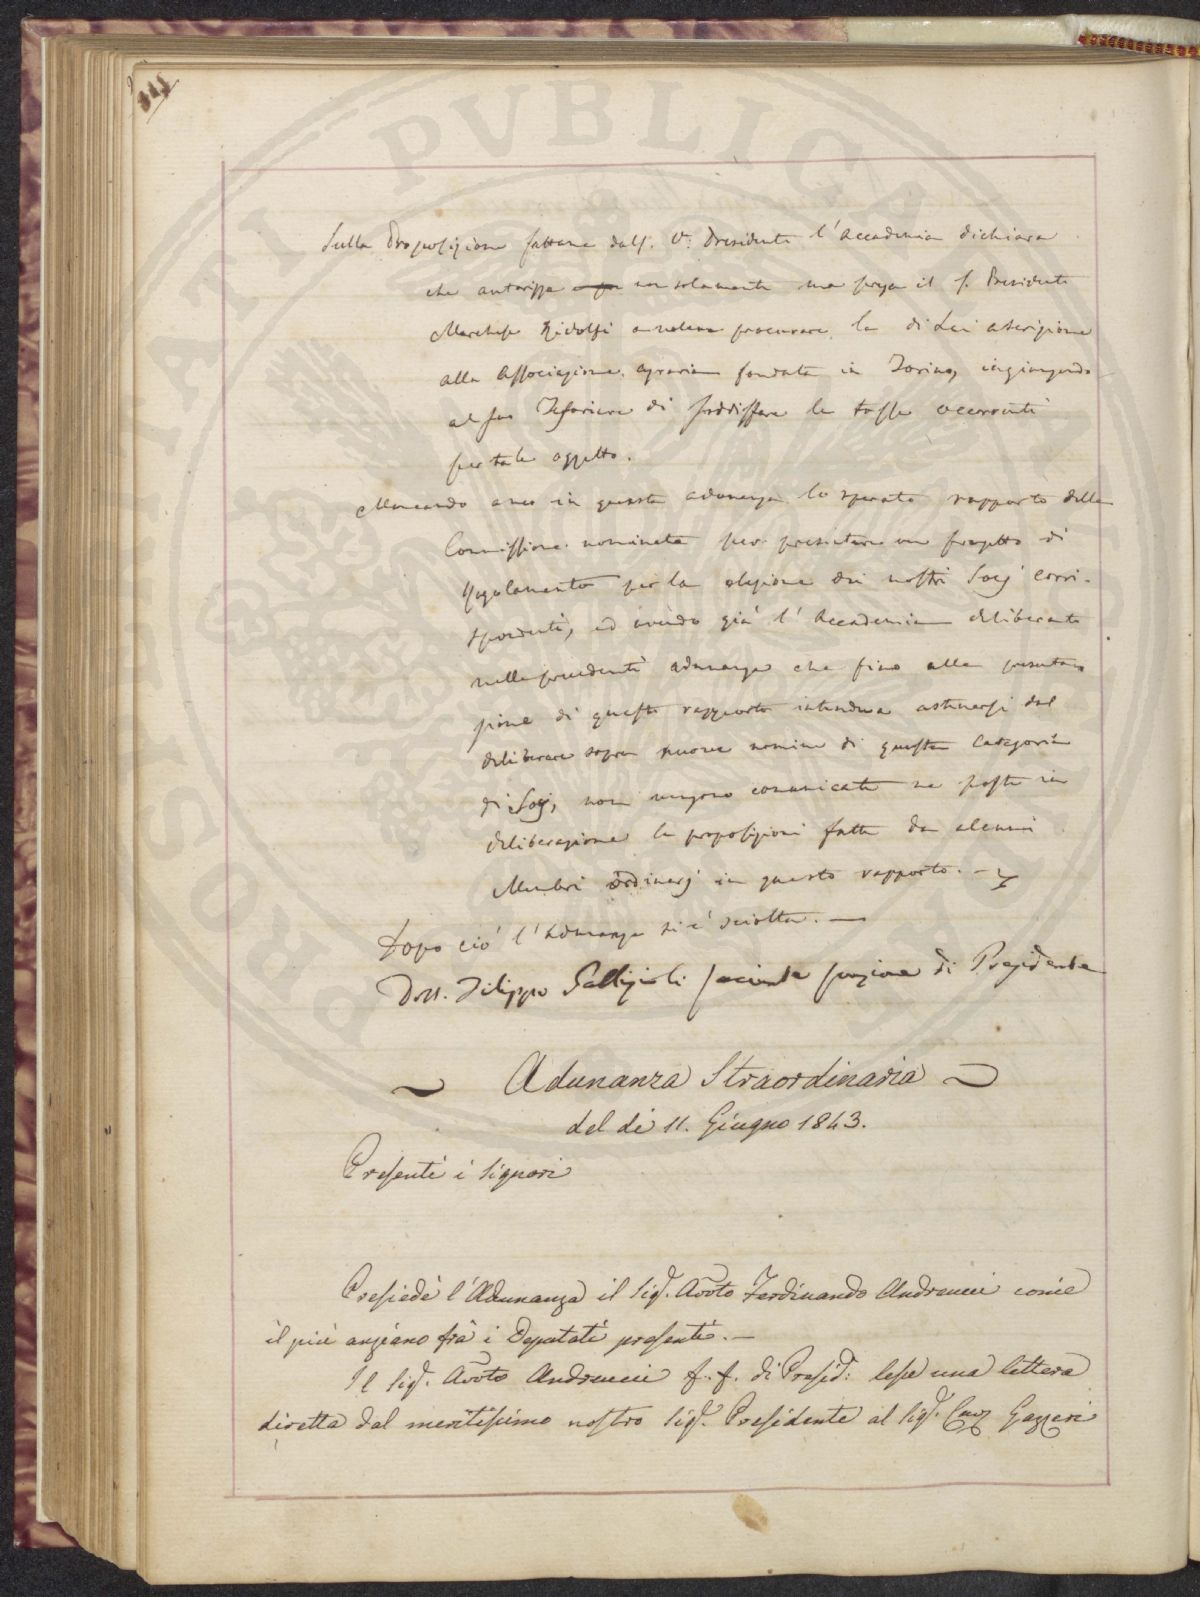 Sulla Proposizione fattane dal S. V. Presidente l'Accademia dichiara
che autorizza non solamente ma prega il S. Presidente
Marchese Ridolfi a volere procurare la di Lei ascrizione
alla Associazione agraria fondata in Torino, ingiungendo
al suo Tesoriere di soddisfare le tasse occorrenti
per tale oggetto.
Mancando anco in questa adunanza lo sperato rapporto della
Commissione nominata per presentare un progetto di
Regolamento per la elezione dei nostri Socj corri-
spondenti, ed avendo già l'Accademia deliberato
nella precedente adunanza che fino alla presenta-
zione di questo rapporto intendeva astenersi dal
deliberare sopra nuove nomine di questa Categoria
di Socj, non vengono comunicate ne poste in
deliberazione le proposizioni fatte da alcuni
Membri ordinarj in questo rapporto. —
Dopo ciò l'Adunanza si è sciolta. —
Dott. Filippo Gallizioli facente funzione di Presidente
Adunanza Straordinaria
del dì 11. Giugno 1843.
Presenti i Signori
Presiedè l'Adunanza il Sig. Avvto Ferdinando Andreucci come
il più anziano frà i Deputati presenti. —
Il Sig. Avvto Andreucci f. f. di Presid: lesse una lettera
diretta dal meritissimo nostro Sig. Presidente al Sig. Cav Gazzeri
PUBLICA